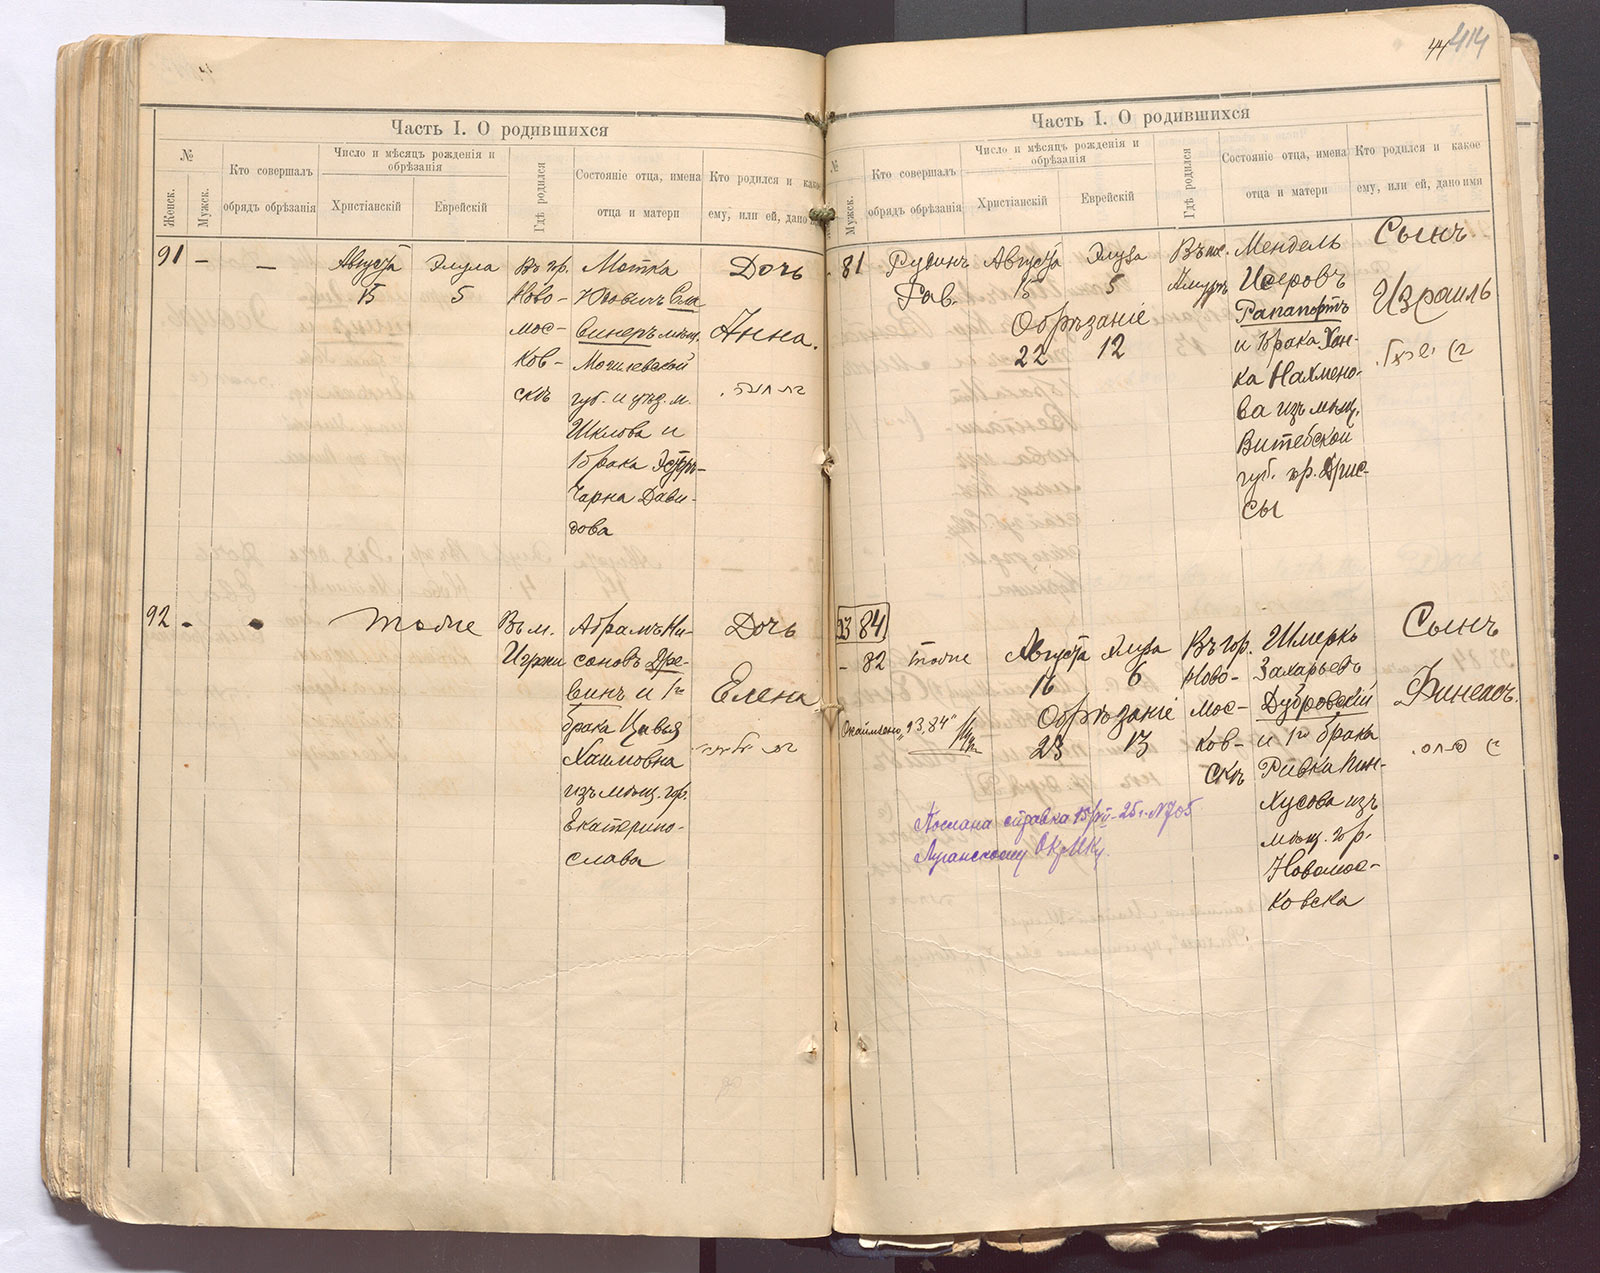 44 414
Часть I. О родившихся
№
Женск.
Мужск.
Кто совершалъ
обрядъ обрѣзанія
Число и мѣсяцъ рожденія и
обрѣзанія
Христіанскій
Еврейскій
Гдѣ родился
Состояніе отца, имена
отца и матери
Кто родился и какое
ему, или ей, дано
91 - -
Августа
15
Элула
5
Въ гр.
Ново-
мос-
ков-
скъ
Мотка
винеръ мѣщ.
Могилевской
губ. и уѣзд. м.
Шклова и
1 брака
Чарна Дави-
дова
Дочь
Анна.
92
тоже
Въ м.
Абрамъ Ни-
соновъ Дре-
винъ и 1го
брака Цивья
Хаимовна
изъ мѣщ. гор.
Екатерино-
слава
Дочь
Елена
Часть I. О родившихся
№
Мужск.
Кто совершалъ
обрядъ обрѣзанія
Число и мѣсяцъ рожденія и
обрѣзанія
Христіанскій
Еврейскій
Гдѣ родился
Состояніе отца, имена
отца и матери
Кто родился и какое
ему, или ей, дано имя
- 81
Рубинъ
Рав.
Августа
15
Элула
5
Обрѣзаніе
22 12
Въ пос.
Амуръ
Мендель
Исеровъ
Рапапортъ
и 1 брака Хан-
ка Нахмено-
ва изъ мѣщ.
Витебской
губ. гр. Дрис-
сы
Сынъ
Израиль
93 84
- 82
тоже
Августа
16
Элула
6
Обрѣзаніе
23 13
Окаймлено „93,84“
Въ гор.
Ново-
мос-
ков-
скъ
Шмерко
Захарьевъ
Дубровскій
и 1го брака
Ривка Пин-
хусова изъ
мѣщ. гр.
Новомос-
ковска
Сынъ
Финехосъ.
Послана справка 15/VII-25 г. №705
Луганскому ОкрИку.